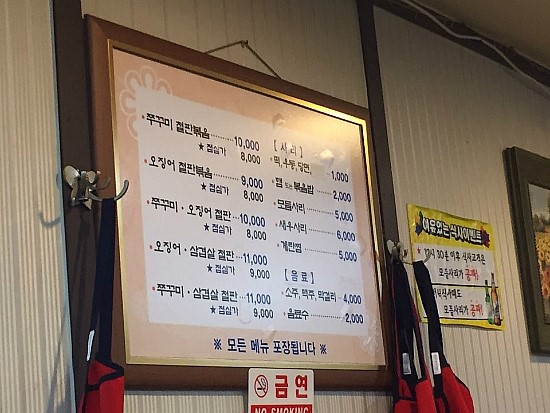 쭈꾸미 철판볶음 10,000
★ 점심가 8,000
오징어 철판볶음 9,000
★ 점심가 8,000
쭈꾸미·오징어 철판 10,000
★ 점심가 8,000
오징어·삼겹살 철판 11,000
★ 점심가 9,000
쭈꾸미·삼겹살 철판 11,000
★ 점심가 9,000
[ 사리 ]
떡,우동,당면,
햄 또는 볶음밥 2,000
모듬사리 5,000
새우사리 6,000
계란찜 5,000
[ 음료 ]
소주, 맥주, 막걸리 4,000
음료수 2,000
※ 모든 메뉴 포장됩니다 ※
금연
NO SMOKING
여유있는 식사이벤트
이후 식사고객은
모듬사리가 공짜!
모듬사리가 공짜!